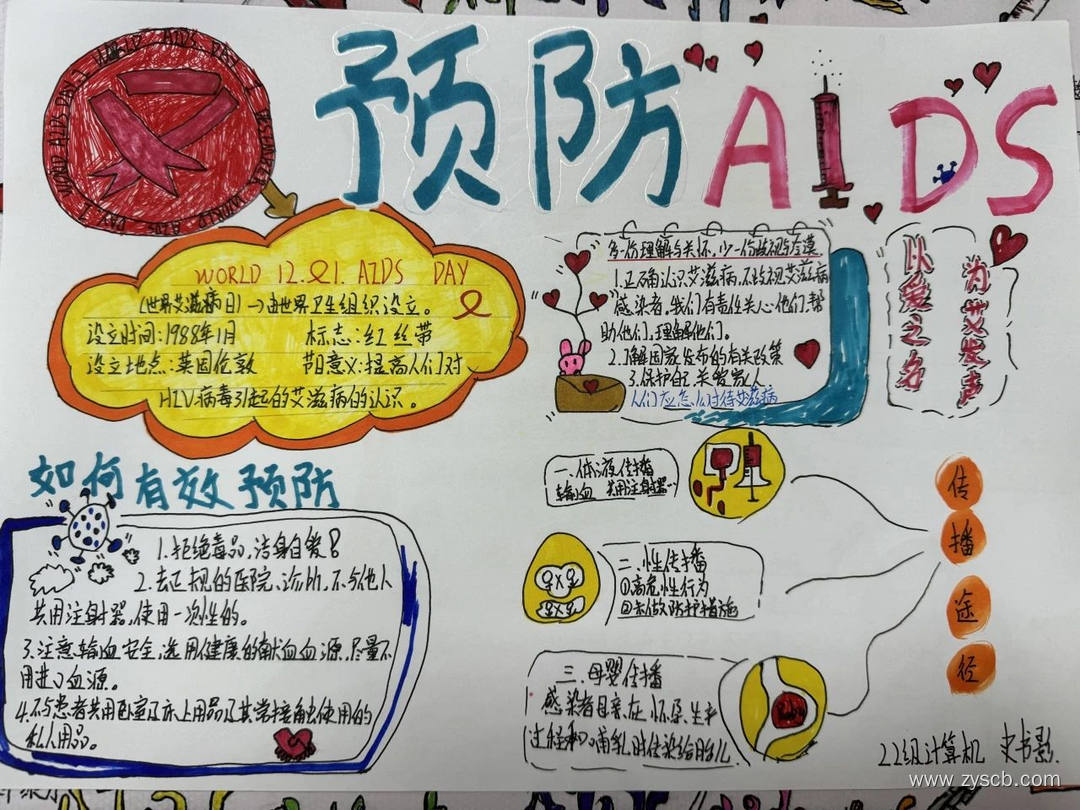 WORLD AIDS DAY
预防AIDS
WORLD 12.1. AIDS DAY
(世界艾滋病日)→由世界卫生组织设立。
设立时间:1988年1月 标志:红丝带
设立地点:英国伦敦 节日意义:提高人们对
HIV病毒引起的艾滋病的认识。
多一份理解与关怀,少一份歧视与冷漠
1.正确认识艾滋病,不歧视艾滋病
感染者,我们有责任关心他们,帮
助他们,理解他们。
2.了解国家发布的有关政策
3.保护自己,关爱家人
人们应怎么对待艾滋病
以爱之名
为艾发声
如何有效预防
1.拒绝毒品,洁身自爱
2.去正规的医院、诊所,不与他人
共用注射器,使用一次性的。
3.注意输血安全,选用健康的献血血源,尽量不
用进口血源。
4.不与患者共用卧室及床上用品及其常接触使用的
私人用品。
一、体液传播
输血 共用注射器
二、性传播
①高危性行为
②未做防护措施
三、母婴传播
感染者母亲在怀孕、生产
过程和哺乳时传染给胎儿
传播途径
22级计算机
www.zyscb.com